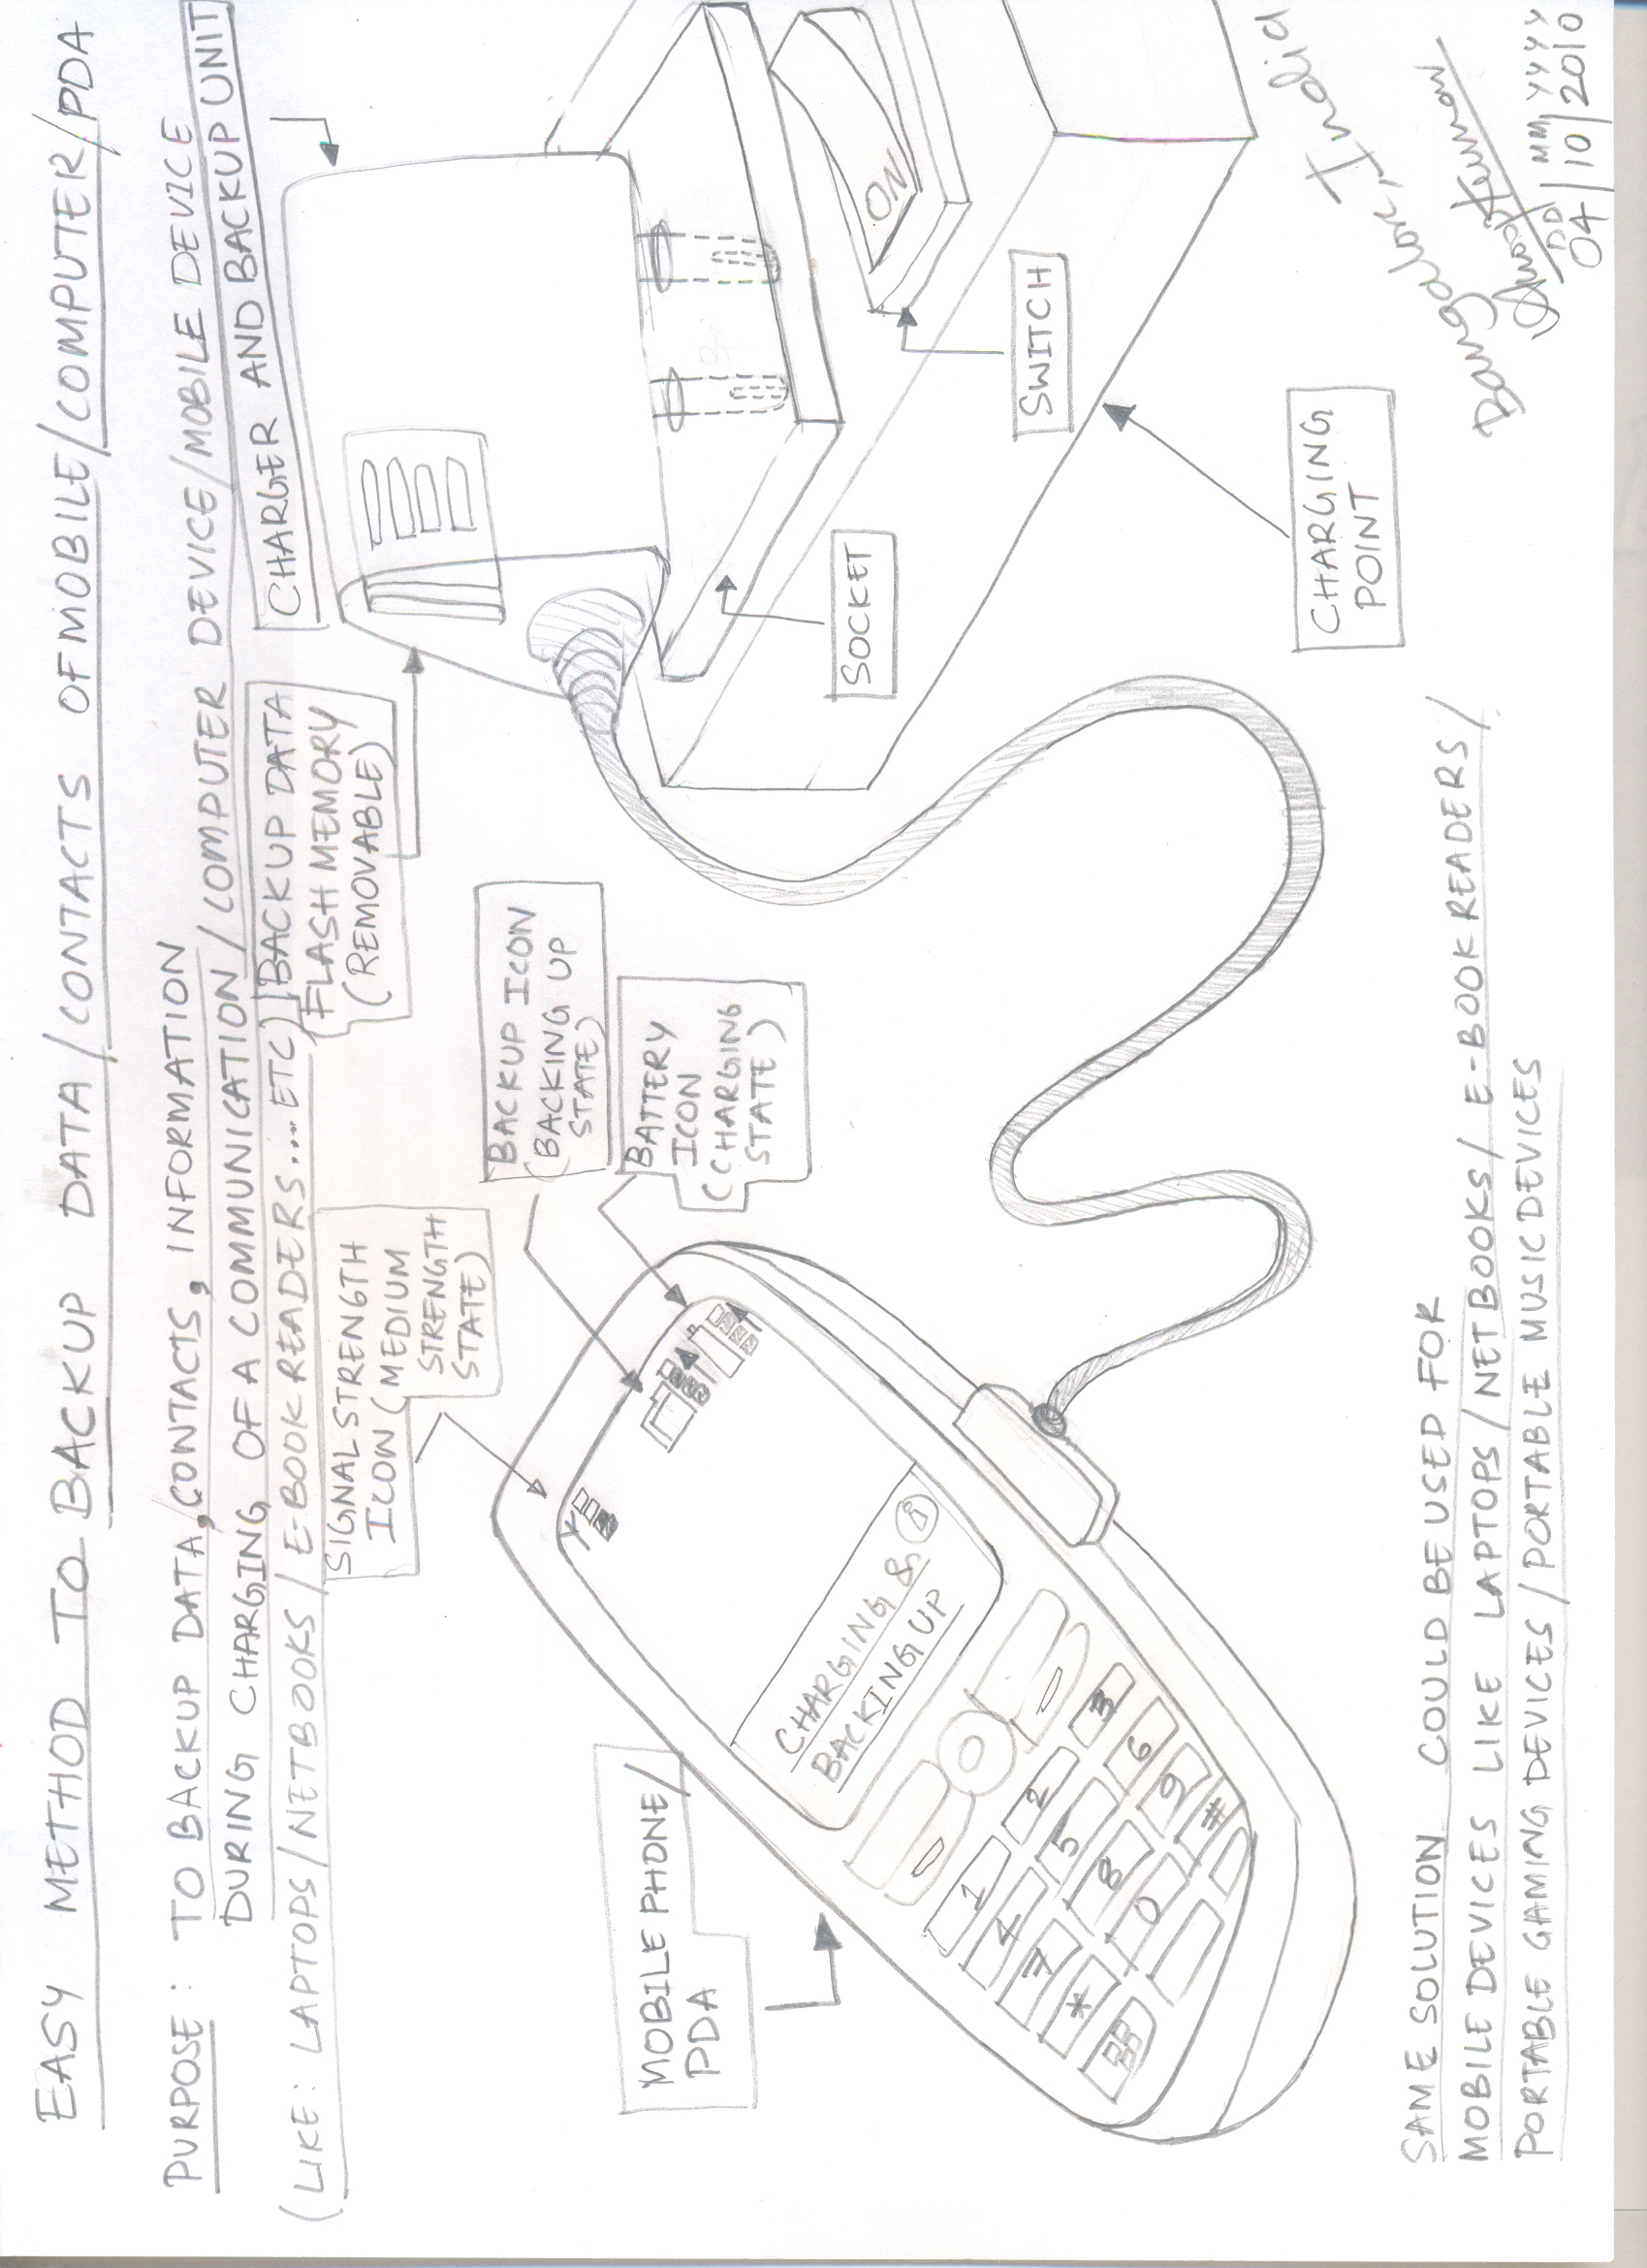 EASY METHOD TO BACKUP DATA/CONTACTS OF MOBILE/COMPUTER/PDA
PURPOSE: TO BACKUP DATA, CONTACTS, INFORMATION
DURING CHARGING OF A COMMUNICATION/COMPUTER DEVICE/MOBILE DEVICE
(LIKE: LAPTOPS/NETBOOKS/E-BOOK READERS...ETC)
CHARGER AND BACKUP UNIT
BACKUP DATA
FLASH MEMORY
(REMOVABLE)
SIGNAL STRENGTH
ICON (MEDIUM
STRENGTH
STATE)
BACKUP ICON
(BACKING UP
STATE)
BATTERY
ICON
(CHARGING
STATE)
MOBILE PHONE/
PDA
CHARGING &
BACKING UP
i
1 2 3
4 5 6
7 8 9
* 0 #
SOCKET
SWITCH
ON
CHARGING
POINT
SAME SOLUTION COULD BE USED FOR
MOBILE DEVICES LIKE LAPTOPS/NETBOOKS/E-BOOK READERS/
PORTABLE GAMING DEVICES/PORTABLE MUSIC DEVICES
Bangalore, India
Kumar
DD MM YYYY
04/10/2010